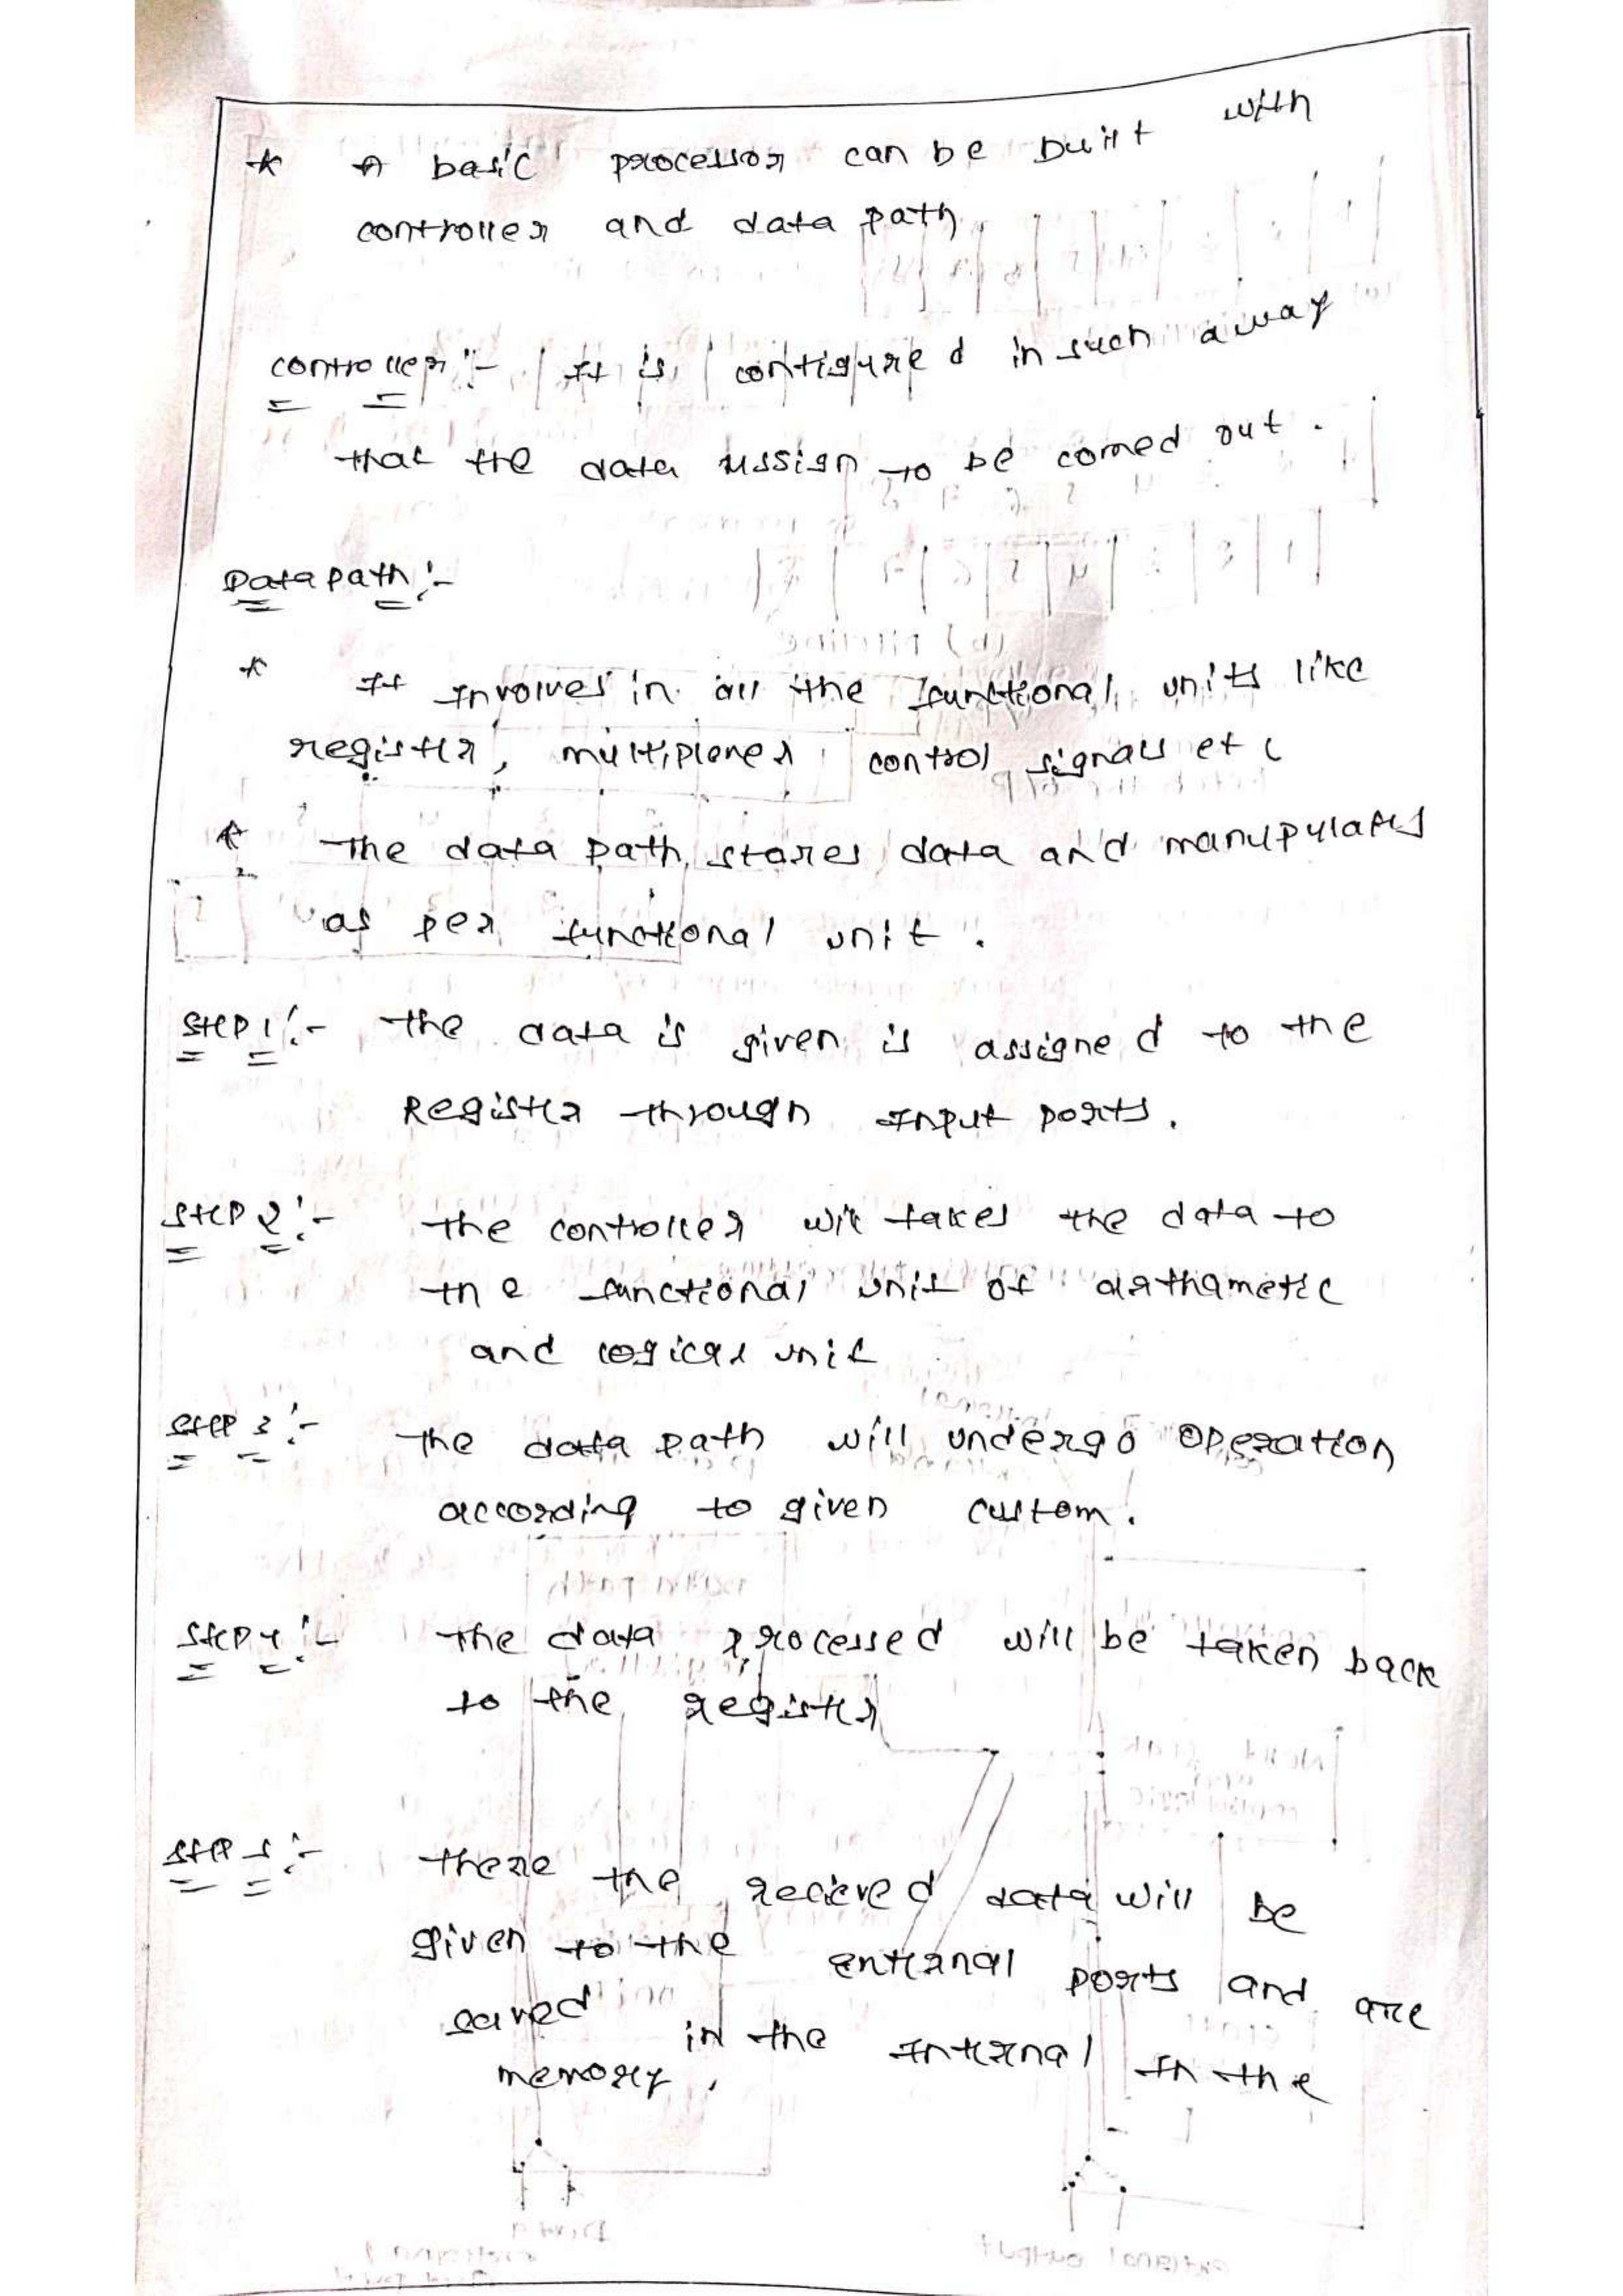 * A basic processor can be built with
controller and data path.
controller :- It is configured in such a way
that the data assign to be comed out.
Data path :-
* It Involves in all the functional units like
register, multiplexer, control signals etc
* The data path stores data and manupulates
as per functional unit.
Step 1 :- The data is given is assigned to the
Register through Input ports.
Step 2 :- The controller will takes the data to
the functional unit of arthametic
and logical unit
Step 3 :- The data path will undergo operation
according to given custom.
Step 4 :- The data processed will be taken back
to the register
Step 5 :- There the recieved data will be
given to the enternal ports and are
saved in the Internal In the
memory.